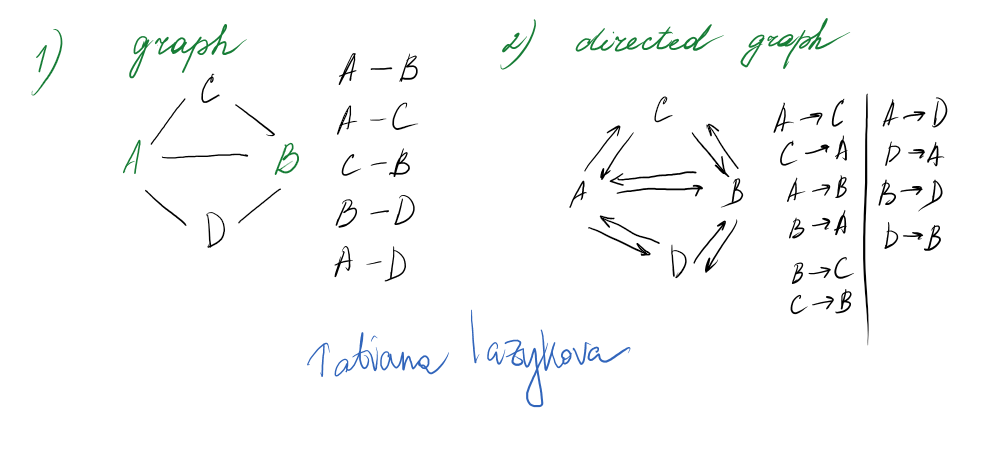 1) graph
C
A B
D
A - B
A - C
C - B
B - D
A - D
2) directed graph
C
A B
D
A → C
C → A
A → B
B → A
B → C
C → B
A → D
D → A
B → D
D → B
Tatiana Lazykova